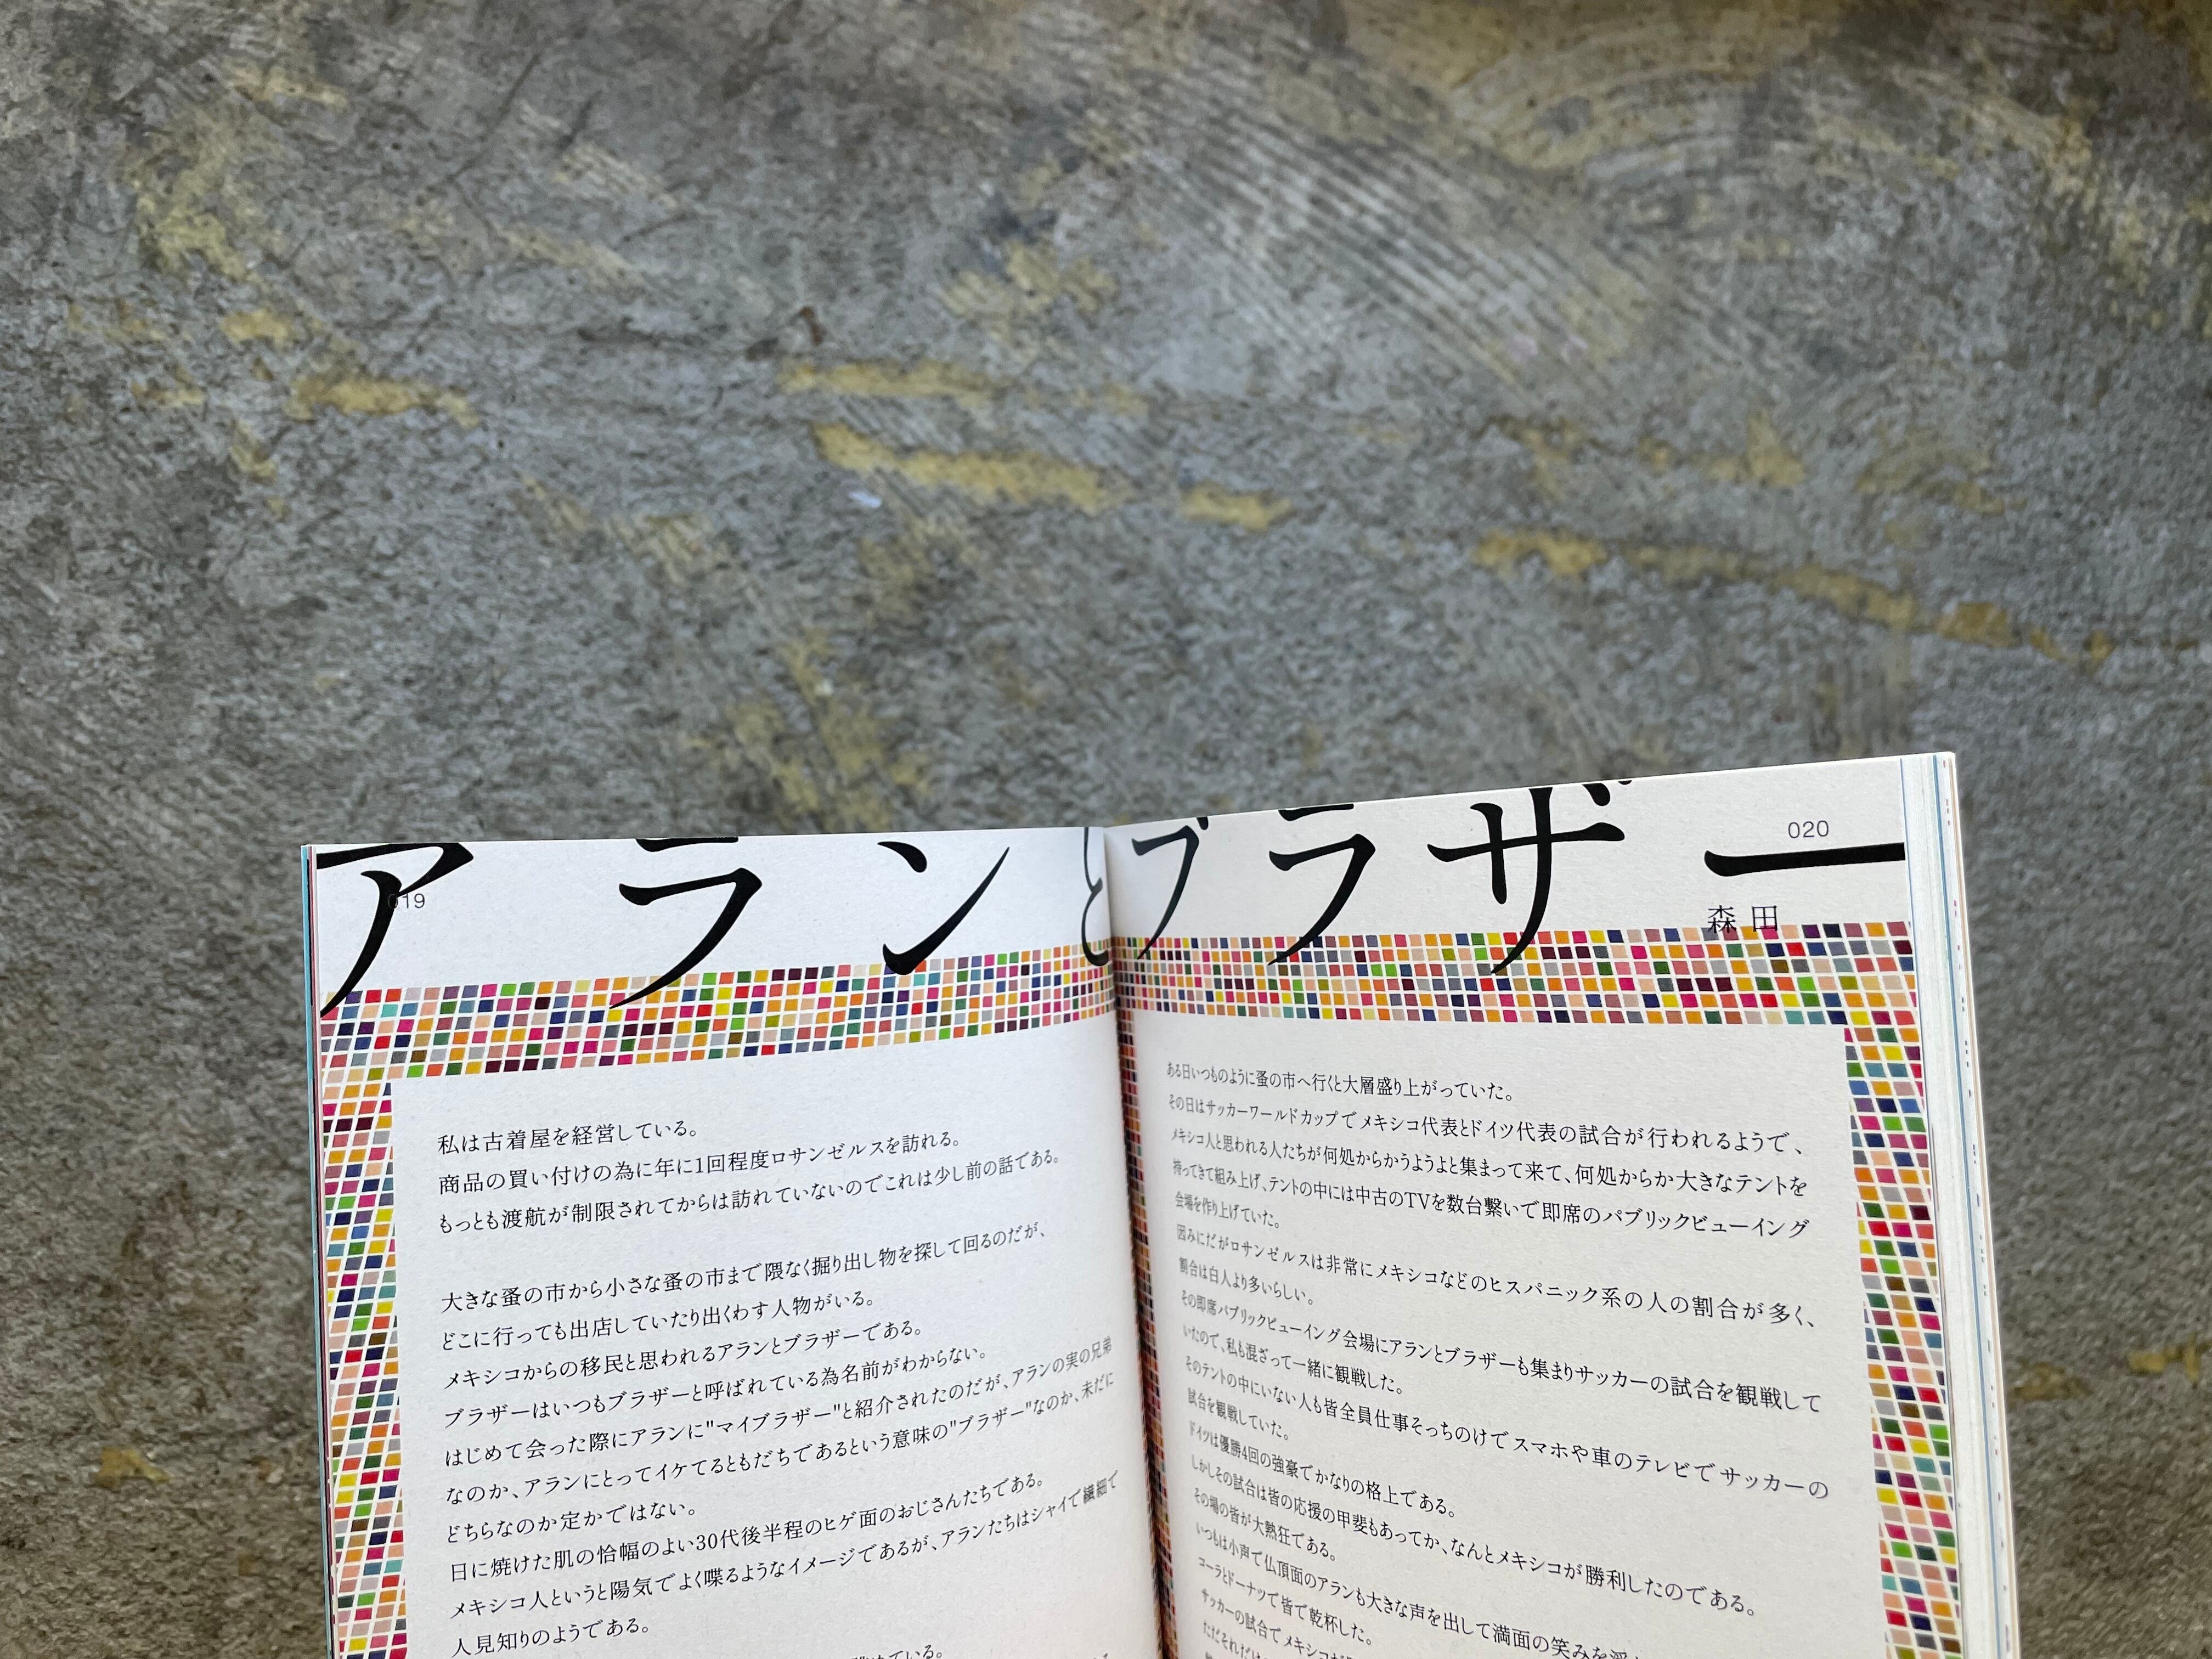 アランとブラザー
019
020
森田
私は古着屋を経営している。
商品の買い付けの為に年に1回程度ロサンゼルスを訪れる。
もっとも渡航が制限されてからは訪れていないのでこれは少し前の話である。
大きな蚤の市から小さな蚤の市まで隈なく掘り出し物を探して回るのだが、
どこに行っても出店していたり出くわす人物がいる。
メキシコからの移民と思われるアランとブラザーである。
ブラザーはいつもブラザーと呼ばれている為名前がわからない。
はじめて会った際にアランに"マイブラザー"と紹介されたのだが、アランの実の兄弟
なのか、アランにとってイケてるともだちであるという意味の"ブラザー"なのか、未だに
どちらなのか定かではない。
日に焼けた肌の恰幅のよい30代後半程のヒゲ面のおじさんたちである。
メキシコ人というと陽気でよく喋るようなイメージであるが、アランたちはシャイで繊細で
人見知りのようである。
ている。
ある日いつものように蚤の市へ行くと大層盛り上がっていた。
その日はサッカーワールドカップでメキシコ代表とドイツ代表の試合が行われるようで、
メキシコ人と思われる人たちが何処からかうようよと集まって来て、何処からか大きなテントを
持ってきて組み上げ、テントの中には中古のTVを数台繋いで即席のパブリックビューイング
会場を作り上げていた。
因みにだがロサンゼルスは非常にメキシコなどのヒスパニック系の人の割合が多く、
割合は白人より多いらしい。
その即席パブリックビューイング会場にアランとブラザーも集まりサッカーの試合を観戦して
いたので、私も混ざって一緒に観戦した。
そのテントの中にいない人も皆全員仕事そっちのけでスマホや車のテレビでサッカーの
試合を観戦していた。
ドイツは優勝4回の強豪でかなりの格上である。
しかしその試合は皆の応援の甲斐もあってか、なんとメキシコが勝利したのである。
その場の皆が大熱狂である。
いつもは小声で仏頂面のアランも大きな声を出して満面の笑みを
コーラとドーナッツで皆で乾杯した。
サッカーの試合でメキシコが
ただそれだけ